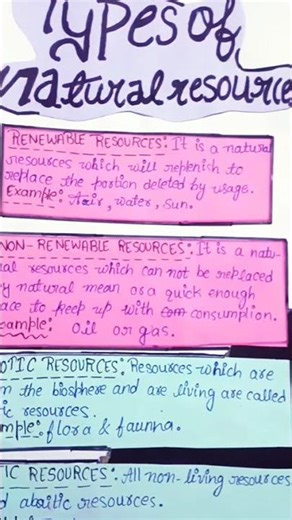 Types of
natural resources
RENEWABLE RESOURCES: It is a natural
resources which will replenish to
replace the portion deleted by usage.
Example: Air, water, sun.
NON-RENEWABLE RESOURCES: It is a natu-
ral resources which can not be replaced
by natural mean as a quick enough
pace to keep up with consumption.
Example: Oil or gas.
OTIC RESOURCES: Resources which are
m the biosphere and are living are called
tic resources.
mple: flora & faunna.
TIC RESOURCES: All non-living resources
d abaitic resources.